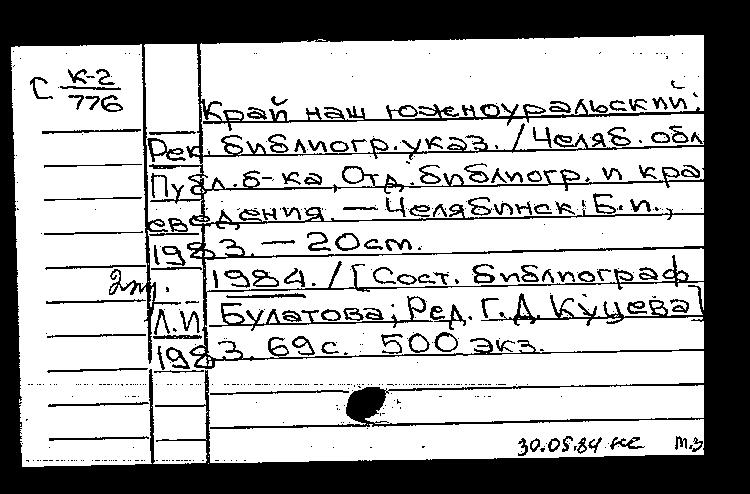 С К-2
776
Край наш южноуральский:
Рек. библиогр. указ. / Челяб. обл
Публ. б-ка, Отд. библиогр. и кра
еведения. — Челябинск: Б.и.,
1983. — 20 см.
1984. / [Сост. библиограф
Л.И. Булатова; Ред. Г.Д. Куцева]
1983. 69 с. 500 экз.
30.05.84